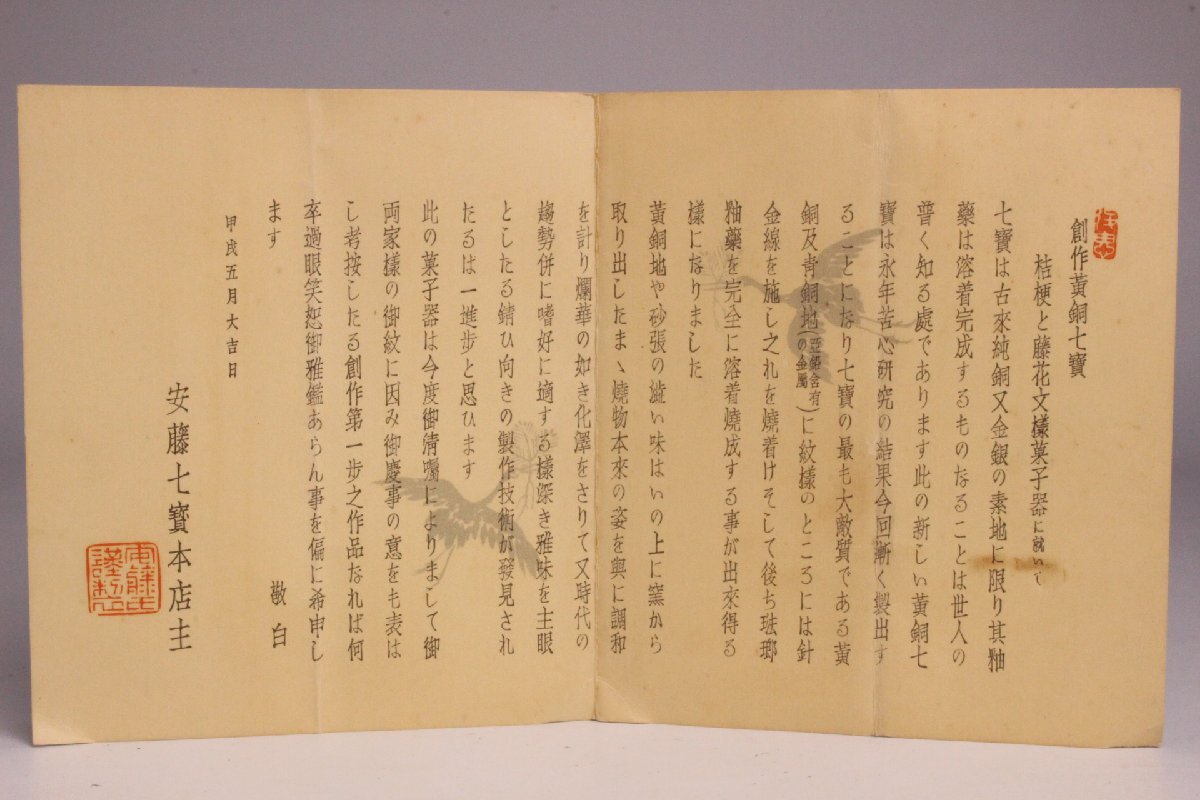 創作黃銅七寶
桔梗と藤花文樣菓子器に就いて
七寶は古來純銅又金銀の素地に限り其釉
藥は溶着完成するものなることは世人の
普く知る處であります此の新しい黃銅七
寶は永年苦心研究の結果今回漸く製出す
ることになり七寶の最も大敵質である黃
銅及靑銅地(亞鉛含有の金屬)に紋樣のところには針
金線を施し之れを燒着けそして後ち琺瑯
釉藥を完全に溶着燒成する事が出來得る
樣になりました
黃銅地や砂張の澁い味はいの上に窯から
取り出したまゝ燒物本來の姿を與に調和
を計り爛華の如き化澤をさりて又時代の
趨勢併に嗜好に適する樣深き雅味を主眼
としたる錆ひ向きの製作技術が發見され
たるは一進步と思ひます
此の菓子器は今度御淸囑によりまして御
両家樣の御紋に因み御慶事の意をも表は
し考按したる創作第一步之作品なれば何
卒過眼笑恕御雅鑑あらん事を偏に希申し
ます
敬白
甲戌五月大吉日
安藤七寶本店主
安藤七寶謹製